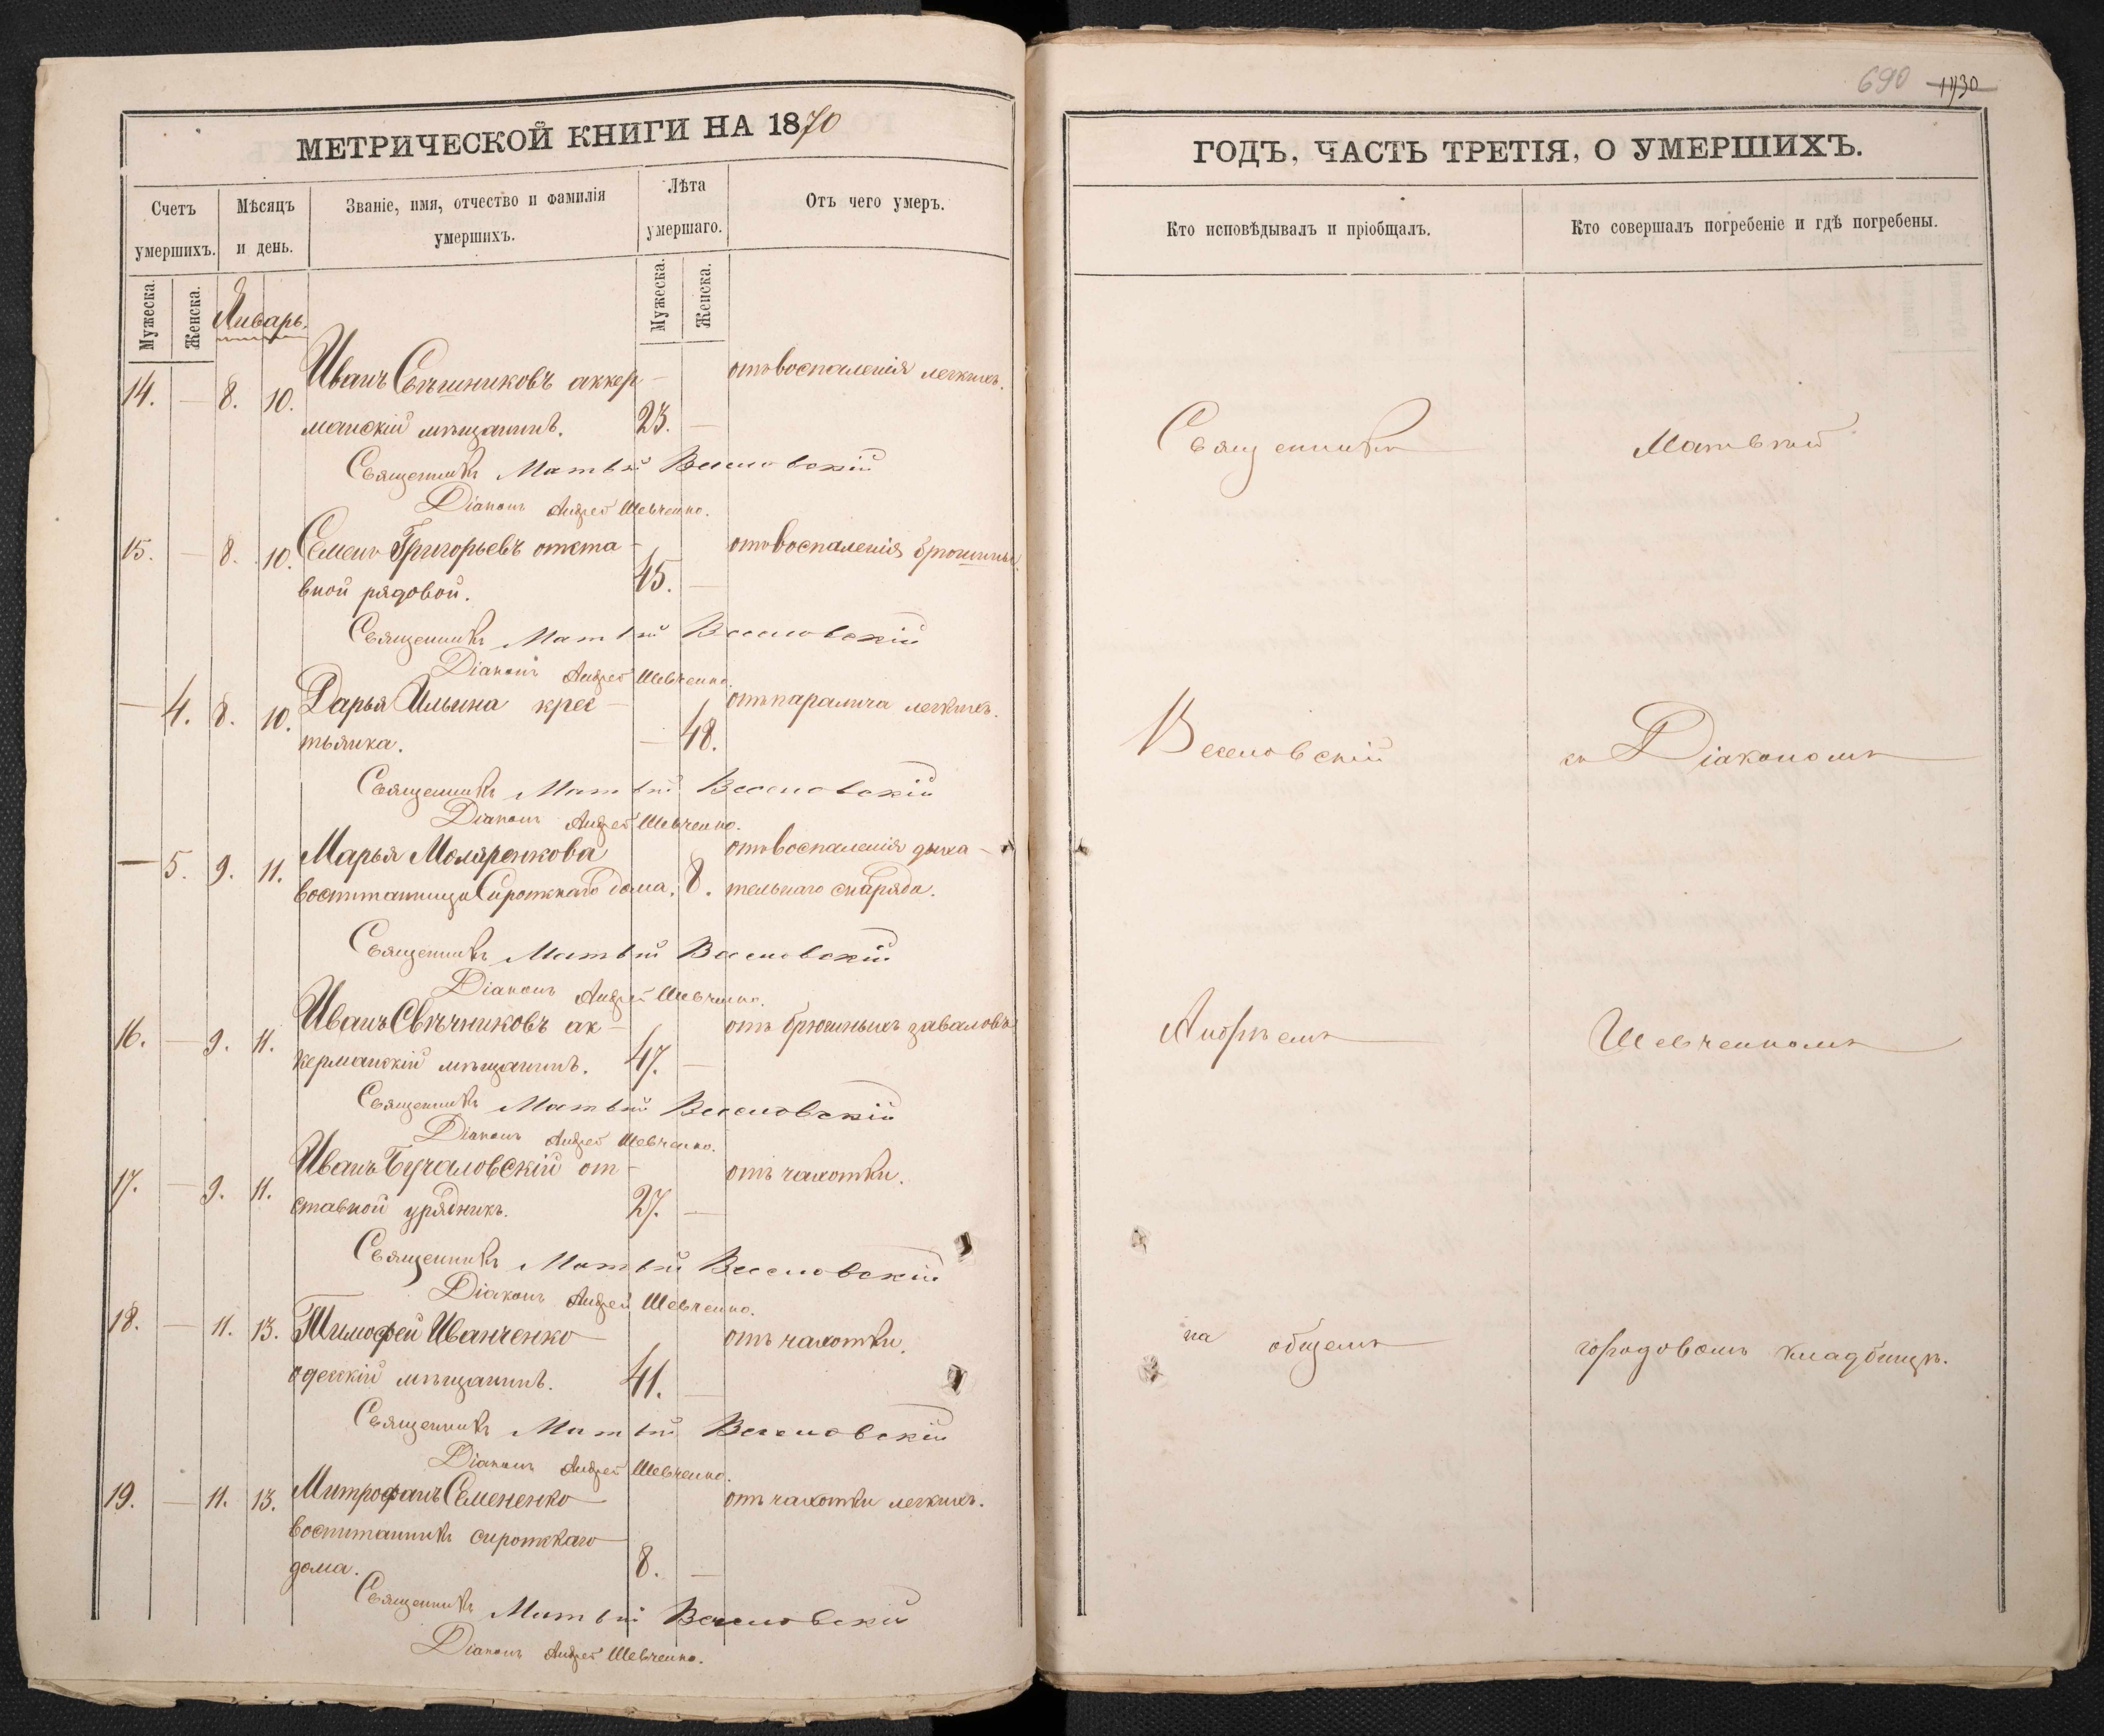 МЕТРИЧЕСКОЙ КНИГИ НА 1870
Счетъ умершихъ.
Мѣсяцъ и день.
Званіе, имя, отчество и фамилія умершихъ.
Лѣта умершаго.
Отъ чего умеръ.
Мужеска.
Женска.
Мужеска.
Женска.
Январь.
14. — 8. 10. Иванъ Свѣшниковъ аккер- отъ воспаленія легкихъ.
манскій мѣщанинъ. 23. —
Священникъ Матвѣй Веселовскій
Діаконъ Андрей Шевченко.
15. — 8. 10. Семенъ Григорьевъ отста- отъ воспаленія брюшины.
вной рядовой. 45. —
Священникъ Матвѣй Веселовскій
Діаконъ Андрей Шевченко.
— 4. 8. 10. Дарья Ильина крес- отъ паралича легкихъ.
тьянка. — 48.
Священникъ Матвѣй Веселовскій
Діаконъ Андрей Шевченко.
— 5. 9. 11. Марья Моляренкова отъ воспаленія дыха-
воспитанница Сиротскаго дома. 8. тельнаго снаряда.
Священникъ Матвѣй Веселовскій
Діаконъ Андрей Шевченко.
16. — 9. 11. Иванъ Свѣчниковъ ак- отъ брюшныхъ заваловъ
керманскій мѣщанинъ. 47. —
Священникъ Матвѣй Веселовскій
Діаконъ Андрей Шевченко.
17. — 9. 11. Иванъ Бучаловскій от- отъ чахотки.
ставной урядникъ. 27. —
Священникъ Матвѣй Веселовскій
Діаконъ Андрей Шевченко.
18. — 11. 13. Тимофей Иванченко отъ чахотки.
одесскій мѣщанинъ. 41. —
Священникъ Матвѣй Веселовскій
Діаконъ Андрей Шевченко.
19. — 11. 13. Митрофанъ Семененко отъ чахотки легкихъ.
воспитанникъ сиротскаго
дома. 8. —
Священникъ Матвѣй Веселовскій
Діаконъ Андрей Шевченко.
690 1430
ГОДЪ, ЧАСТЬ ТРЕТІЯ, О УМЕРШИХЪ.
Кто исповѣдывалъ и пріобщалъ.
Кто совершалъ погребеніе и гдѣ погребены.
Священникъ Матвѣй
Веселовскій съ Діакономъ
Андреемъ Шевченкомъ
на общемъ городовомъ кладбищѣ.